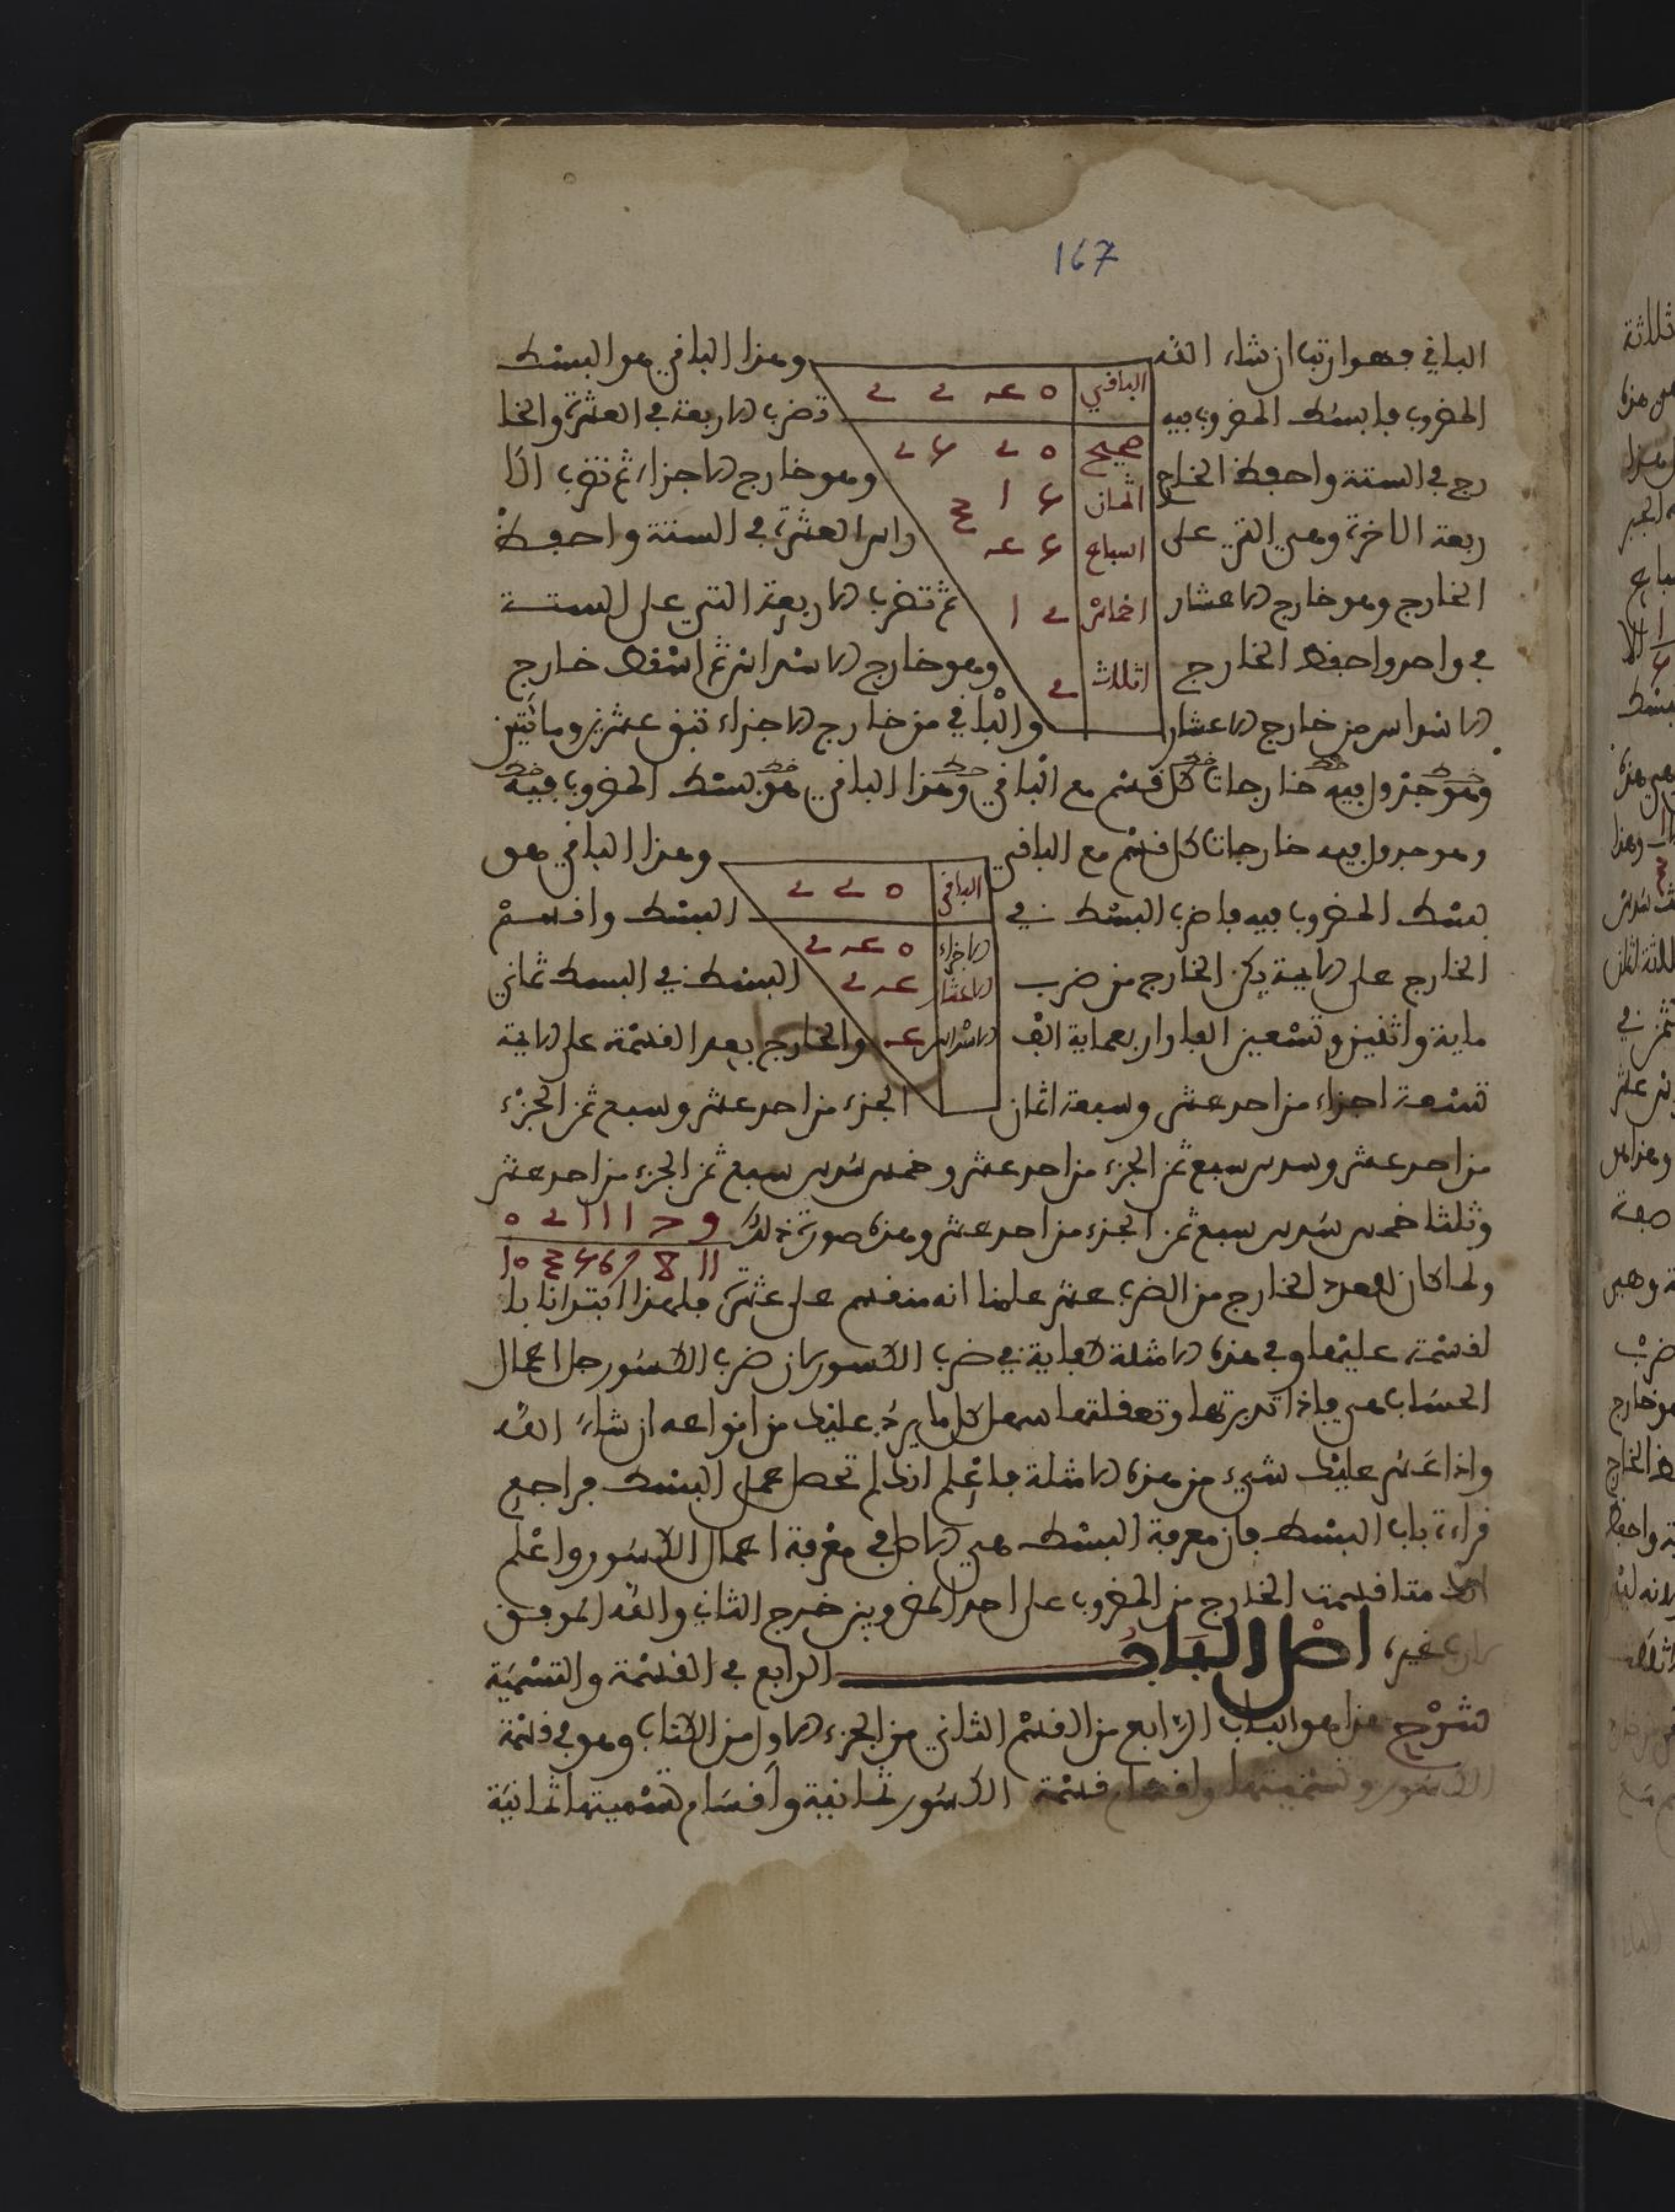 167
الباقي فهوا رتبا ان شاء الله وهذا الباقي هو البسط
المضروب فابسط المضروب فيه تضرب الاربعة في العشرة والخا
رج في الستة واحفظ الخارج وهو خارج الاجزاء ثم تضرب الا
ربعة الاخرة وهي التي على راس العشرة في الستة واحفظ
الخارج وهو خارج الاعشار ثم تضرب الاربعة التي على الستة
في واحد واحفظ الخارج وهو خارج الاسداس ثم اسقط خارج
الاسداس من خارج الاعشار والباقي من خارج الاجزاء تبق عشرين ومائتين
وهو جدول فيه خارجات كل قسم مع الباقي وهذا الباقي هو بسط المضروب فيه
وهو جدول فيه خارجات كل قسم مع الباقي وهذا الباقي هو
بسط المضروب فيه فاضرب البسط في البسط واقسم
الخارج على الايمة يكن الخارج من ضرب البسط في البسط ثماني
ماية واثنين وتسعين الفا واربعماية الف والخارج بعد القسمة على الايمة
تسعة اجزاء من احد عشر وسبعة اثمان الجزء من احد عشر وسبع ثمن الجزء
من احد عشر وسدس سبع ثمن الجزء من احد عشر وخمس سدس سبع ثمن الجزء من احد عشر
وثلثا خمس سدس سبع ثمن الجزء من احد عشر وهذه صورة ذلك
ولما كان العدد الخارج من الضرب عشر علمنا انه منقسم على عشرة فلهذا ابتدانا بال
لقسمة عليها وفي هذه الامثلة كفاية في ضرب الكسور لان ضرب الكسور جل اعمال
الحساب هي فاذا تدبرتها وتعقلتها سهل كل ما يرد عليك من انواعه ان شاء الله
واذا عسر عليك شيء من هذه الامثلة فاعلم انك لم تحصل عمل البسط فراجع
قراءة باب البسط فان معرفة البسط هي الاصل في معرفة اعمال الكسور واعلم
انك متا قسمت الخارج من المضروب على احد المضروبين خرج الثاني والله الموفق
غيره اصل الباب الرابع في القسمة والتسمية
شرح هذا هو الباب الرابع من القسم الثاني من الجزء الاول من الكتاب وهو في قسمة
الكسور وتسميتها واقسام قسمة الكسور ثمانية واقسام تسميتها ثمانية
الباقي
صحيح
اثمان
اسباع
اخماس
اثلاث
الباقي
الاجزاء
الاعشار
الاسداس